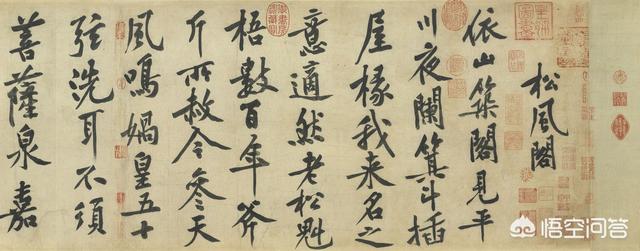 松風閣
依山築閣見平
川夜闌箕斗插
屋椽我来名之
意適然老松魁
梧數百年斧
斤所赦今參天
風鳴媧皇五十
弦洗耳不須
菩薩泉嘉
悟空问答